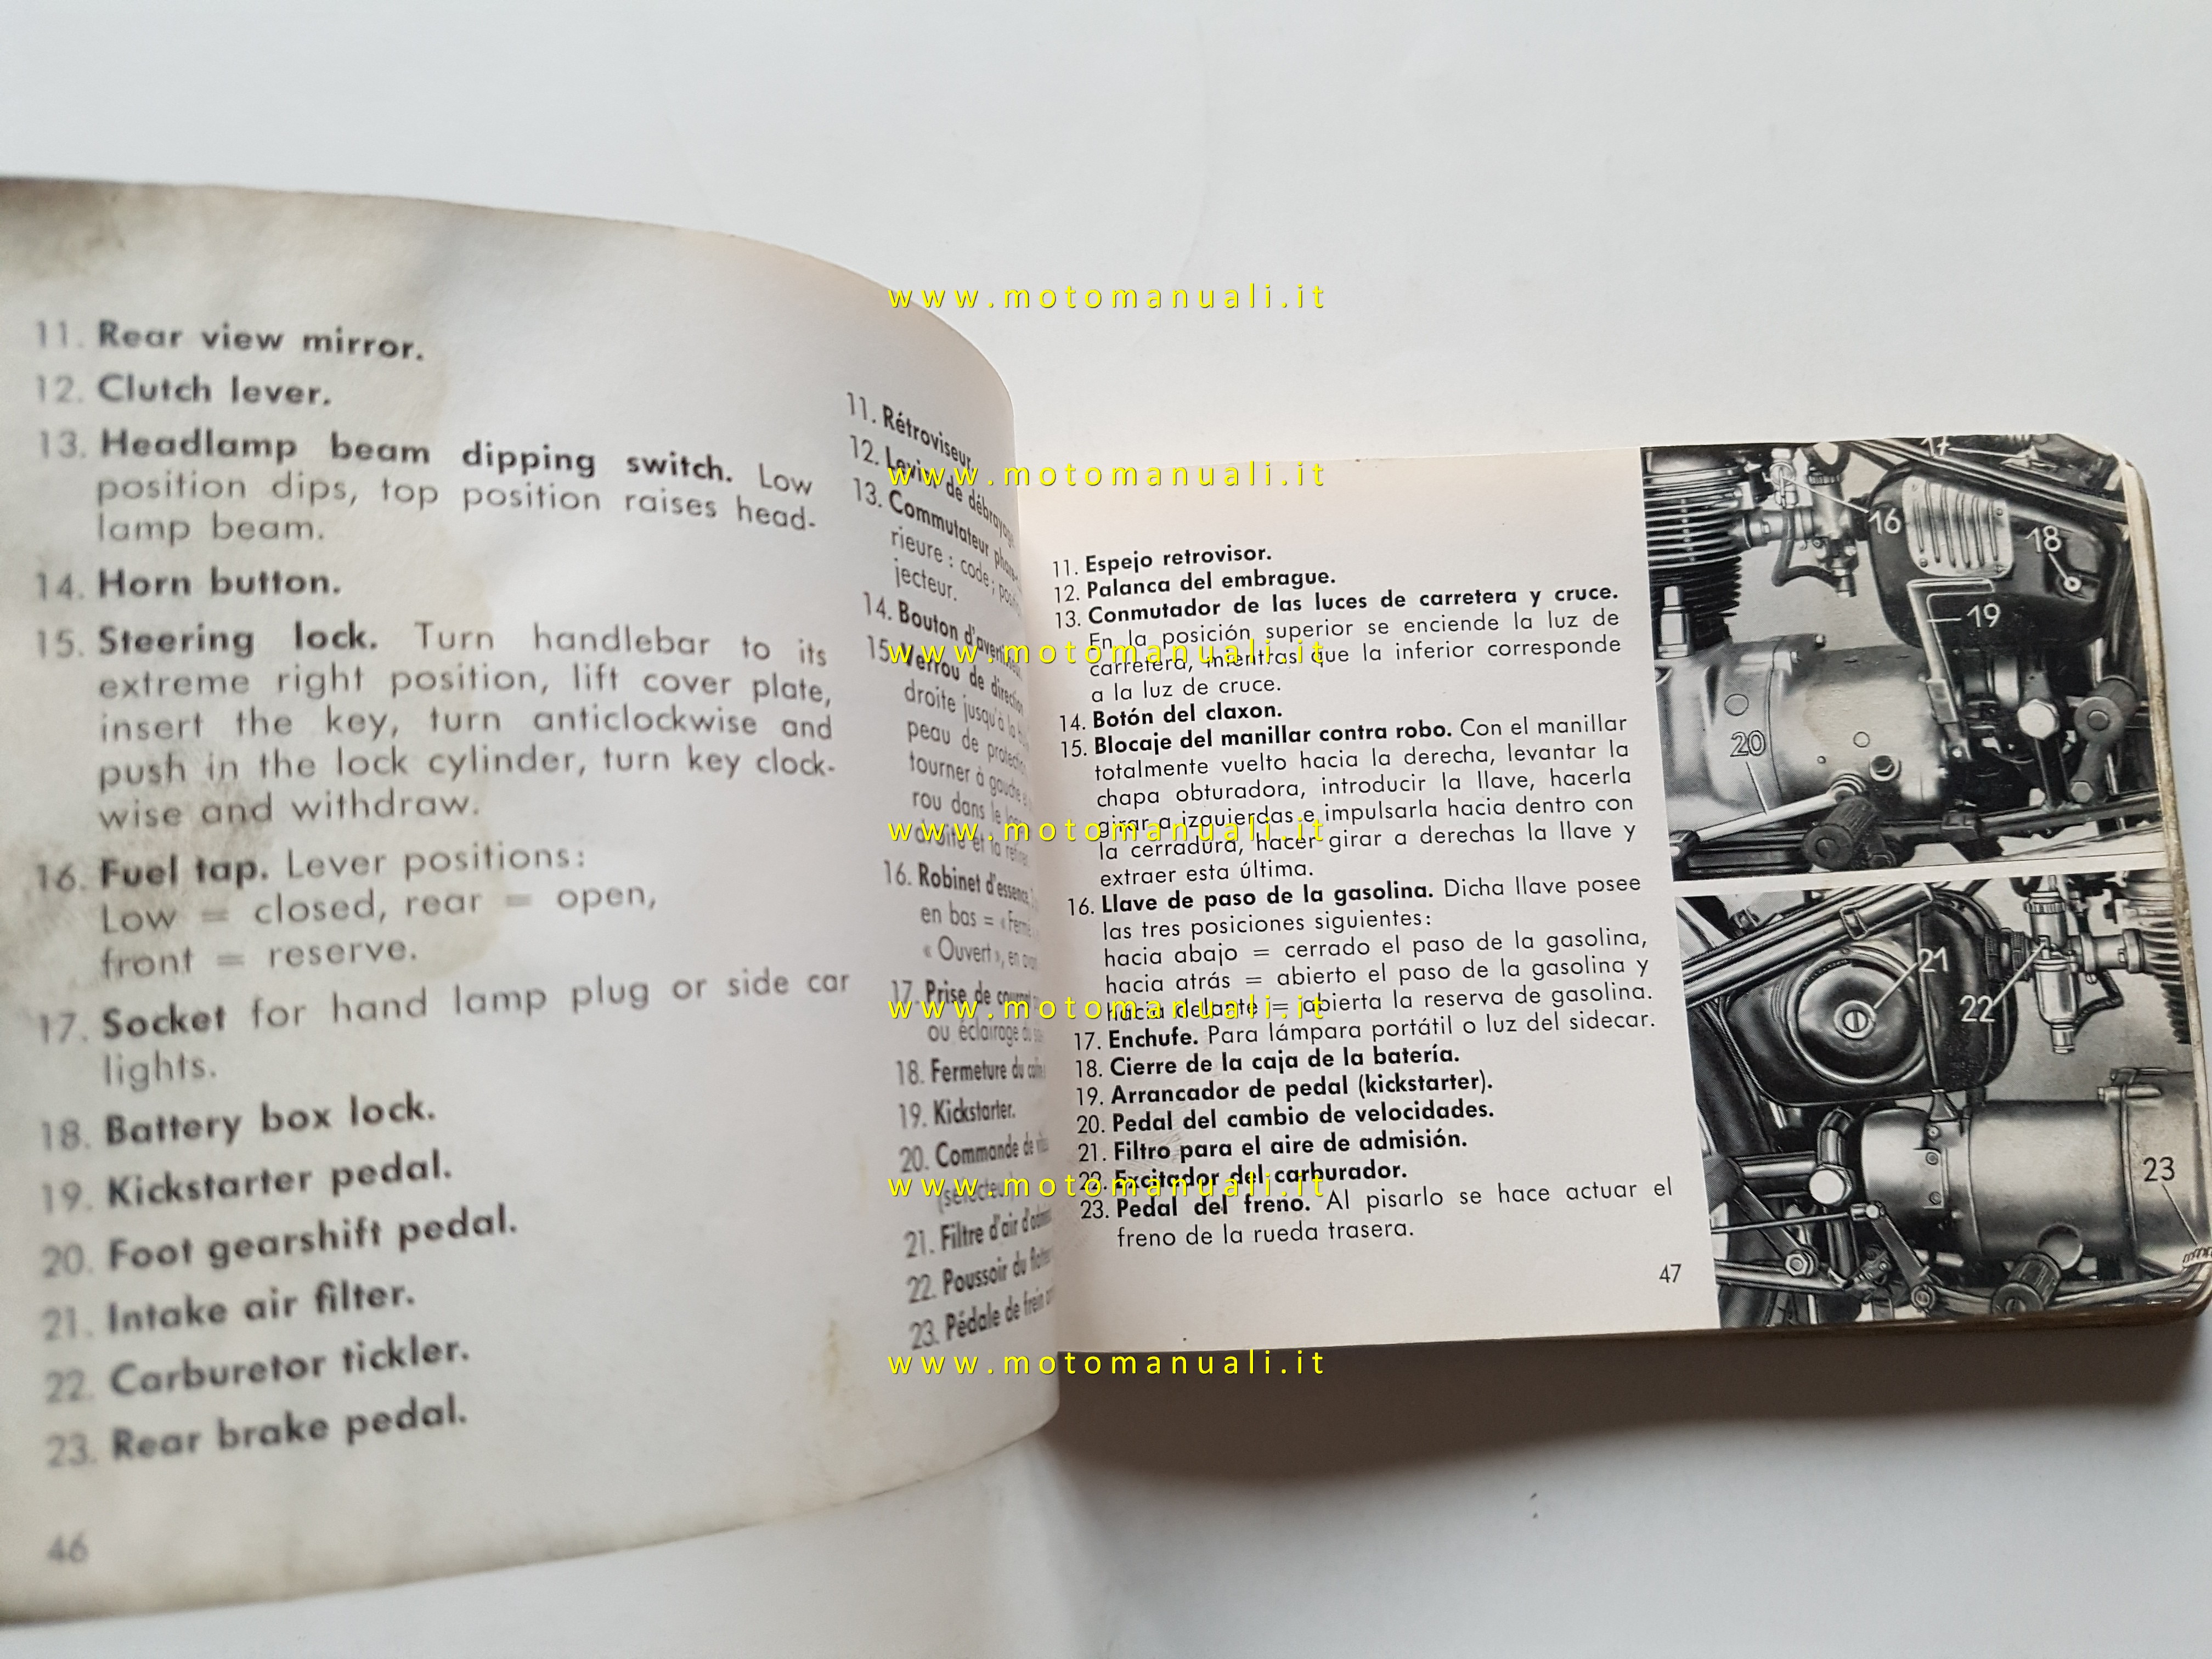 11. Rear view mirror.
12. Clutch lever.
13. Headlamp beam dipping switch. Low
position dips, top position raises head-
lamp beam.
14. Horn button.
15. Steering lock. Turn handlebar to its
extreme right position, lift cover plate,
insert the key, turn anticlockwise and
push in the lock cylinder, turn key clock-
wise and withdraw.
16. Fuel tap. Lever positions:
Low = closed, rear = open,
front = reserve.
17. Socket for hand lamp plug or side car
lights.
18. Battery box lock.
19. Kickstarter pedal.
20. Foot gearshift pedal.
21. Intake air filter.
22. Carburetor tickler.
23. Rear brake pedal.
46
11. Rétroviseur
12. Levier de débrayage
13. Commutateur phare-
rieure : code ;
jecteur.
14. Bouton
15. Verrou de direction
droite jusqu'à la
peau de
tourner à gauche
rou dans le
droite et la
16. Robinet d'essence.
en bas =
« Ouvert », en
17. Prise de
ou éclairage du
18. Fermeture du
19. Kickstarter.
20. Commande de
21. Filtre d'air
22. Poussoir du
23. Pédale de frein
11. Espejo retrovisor.
12. Palanca del embrague.
13. Conmutador de las luces de carretera y cruce.
En la posición superior se enciende la luz de
carretera, mientras que la inferior corresponde
a la luz de cruce.
14. Botón del claxon.
15. Blocaje del manillar contra robo. Con el manillar
totalmente vuelto hacia la derecha, levantar la
chapa obturadora, introducir la llave, hacerla
girar a izquierdas e impulsarla hacia dentro con
la cerradura, hacer girar a derechas la llave y
extraer esta última.
16. Llave de paso de la gasolina. Dicha llave posee
las tres posiciones siguientes:
hacia abajo = cerrado el paso de la gasolina,
hacia atrás = abierto el paso de la gasolina y
hacia delante = abierta la reserva de gasolina.
17. Enchufe. Para lámpara portátil o luz del sidecar.
18. Cierre de la caja de la batería.
19. Arrancador de pedal (kickstarter).
20. Pedal del cambio de velocidades.
21. Filtro para el aire de admisión.
22. Excitador del carburador.
23. Pedal del freno. Al pisarlo se hace actuar el
freno de la rueda trasera.
47
17
16
18
19
20
21
22
23
www.motomanuali.it
www.motomanuali.it
www.motomanuali.it
www.motomanuali.it
www.motomanuali.it
www.motomanuali.it
www.motomanuali.it